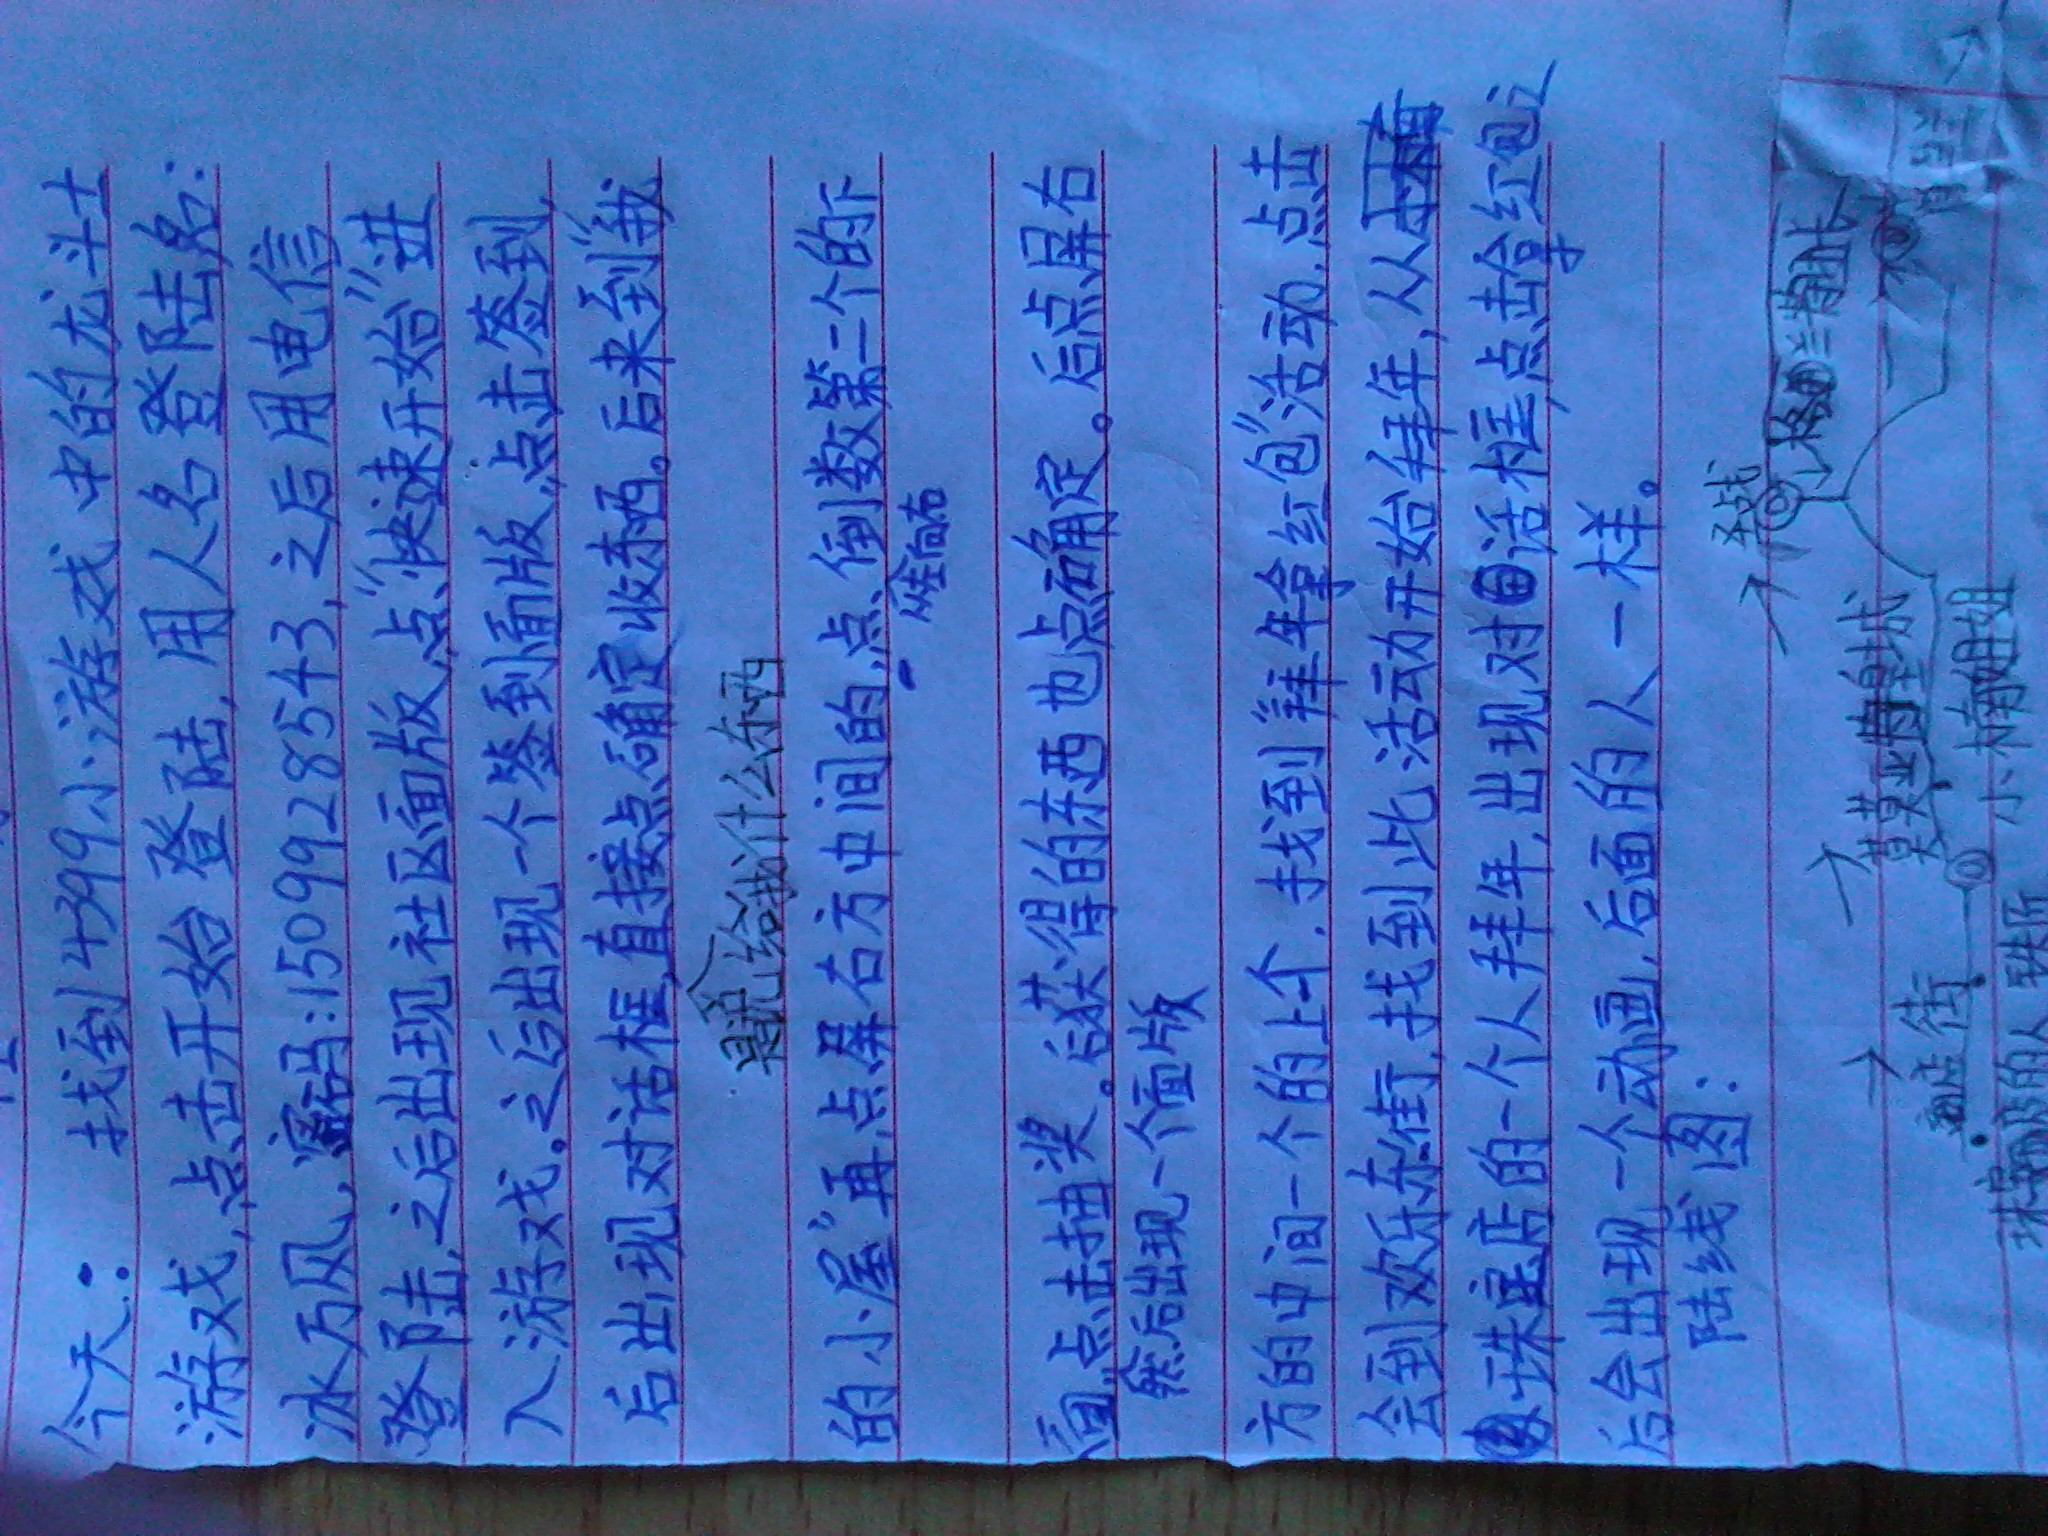 今天: 找到4399小游戏中的龙斗士
游戏,点击开始登陆,用人名登陆名:
冰万风,密码:15099285543,之后用电信
登陆,之后出现社区面版,点“快速开始”进
入游戏。之后出现一个签到面版,点击签到,
后出现对话框,直接点确定收东西。后来到“我
说给我什么东西
的小屋”再点屏右方中间的点、倒数第二个的下
从左向右
面点击抽奖。后获得的东西也点确定。后点屏右
然后出现一个面版
方的中间一个的上个.找到“拜年拿红包”活动,点击
会到欢乐东街,找到此活动开始拜年,从
珠宝店的一个人拜年,出现对话框,点击拿红包之
后会出现一个动画,后面的人一样。
陆线图:
圣战
莫亚皇城
小楠姐
店街
店的人